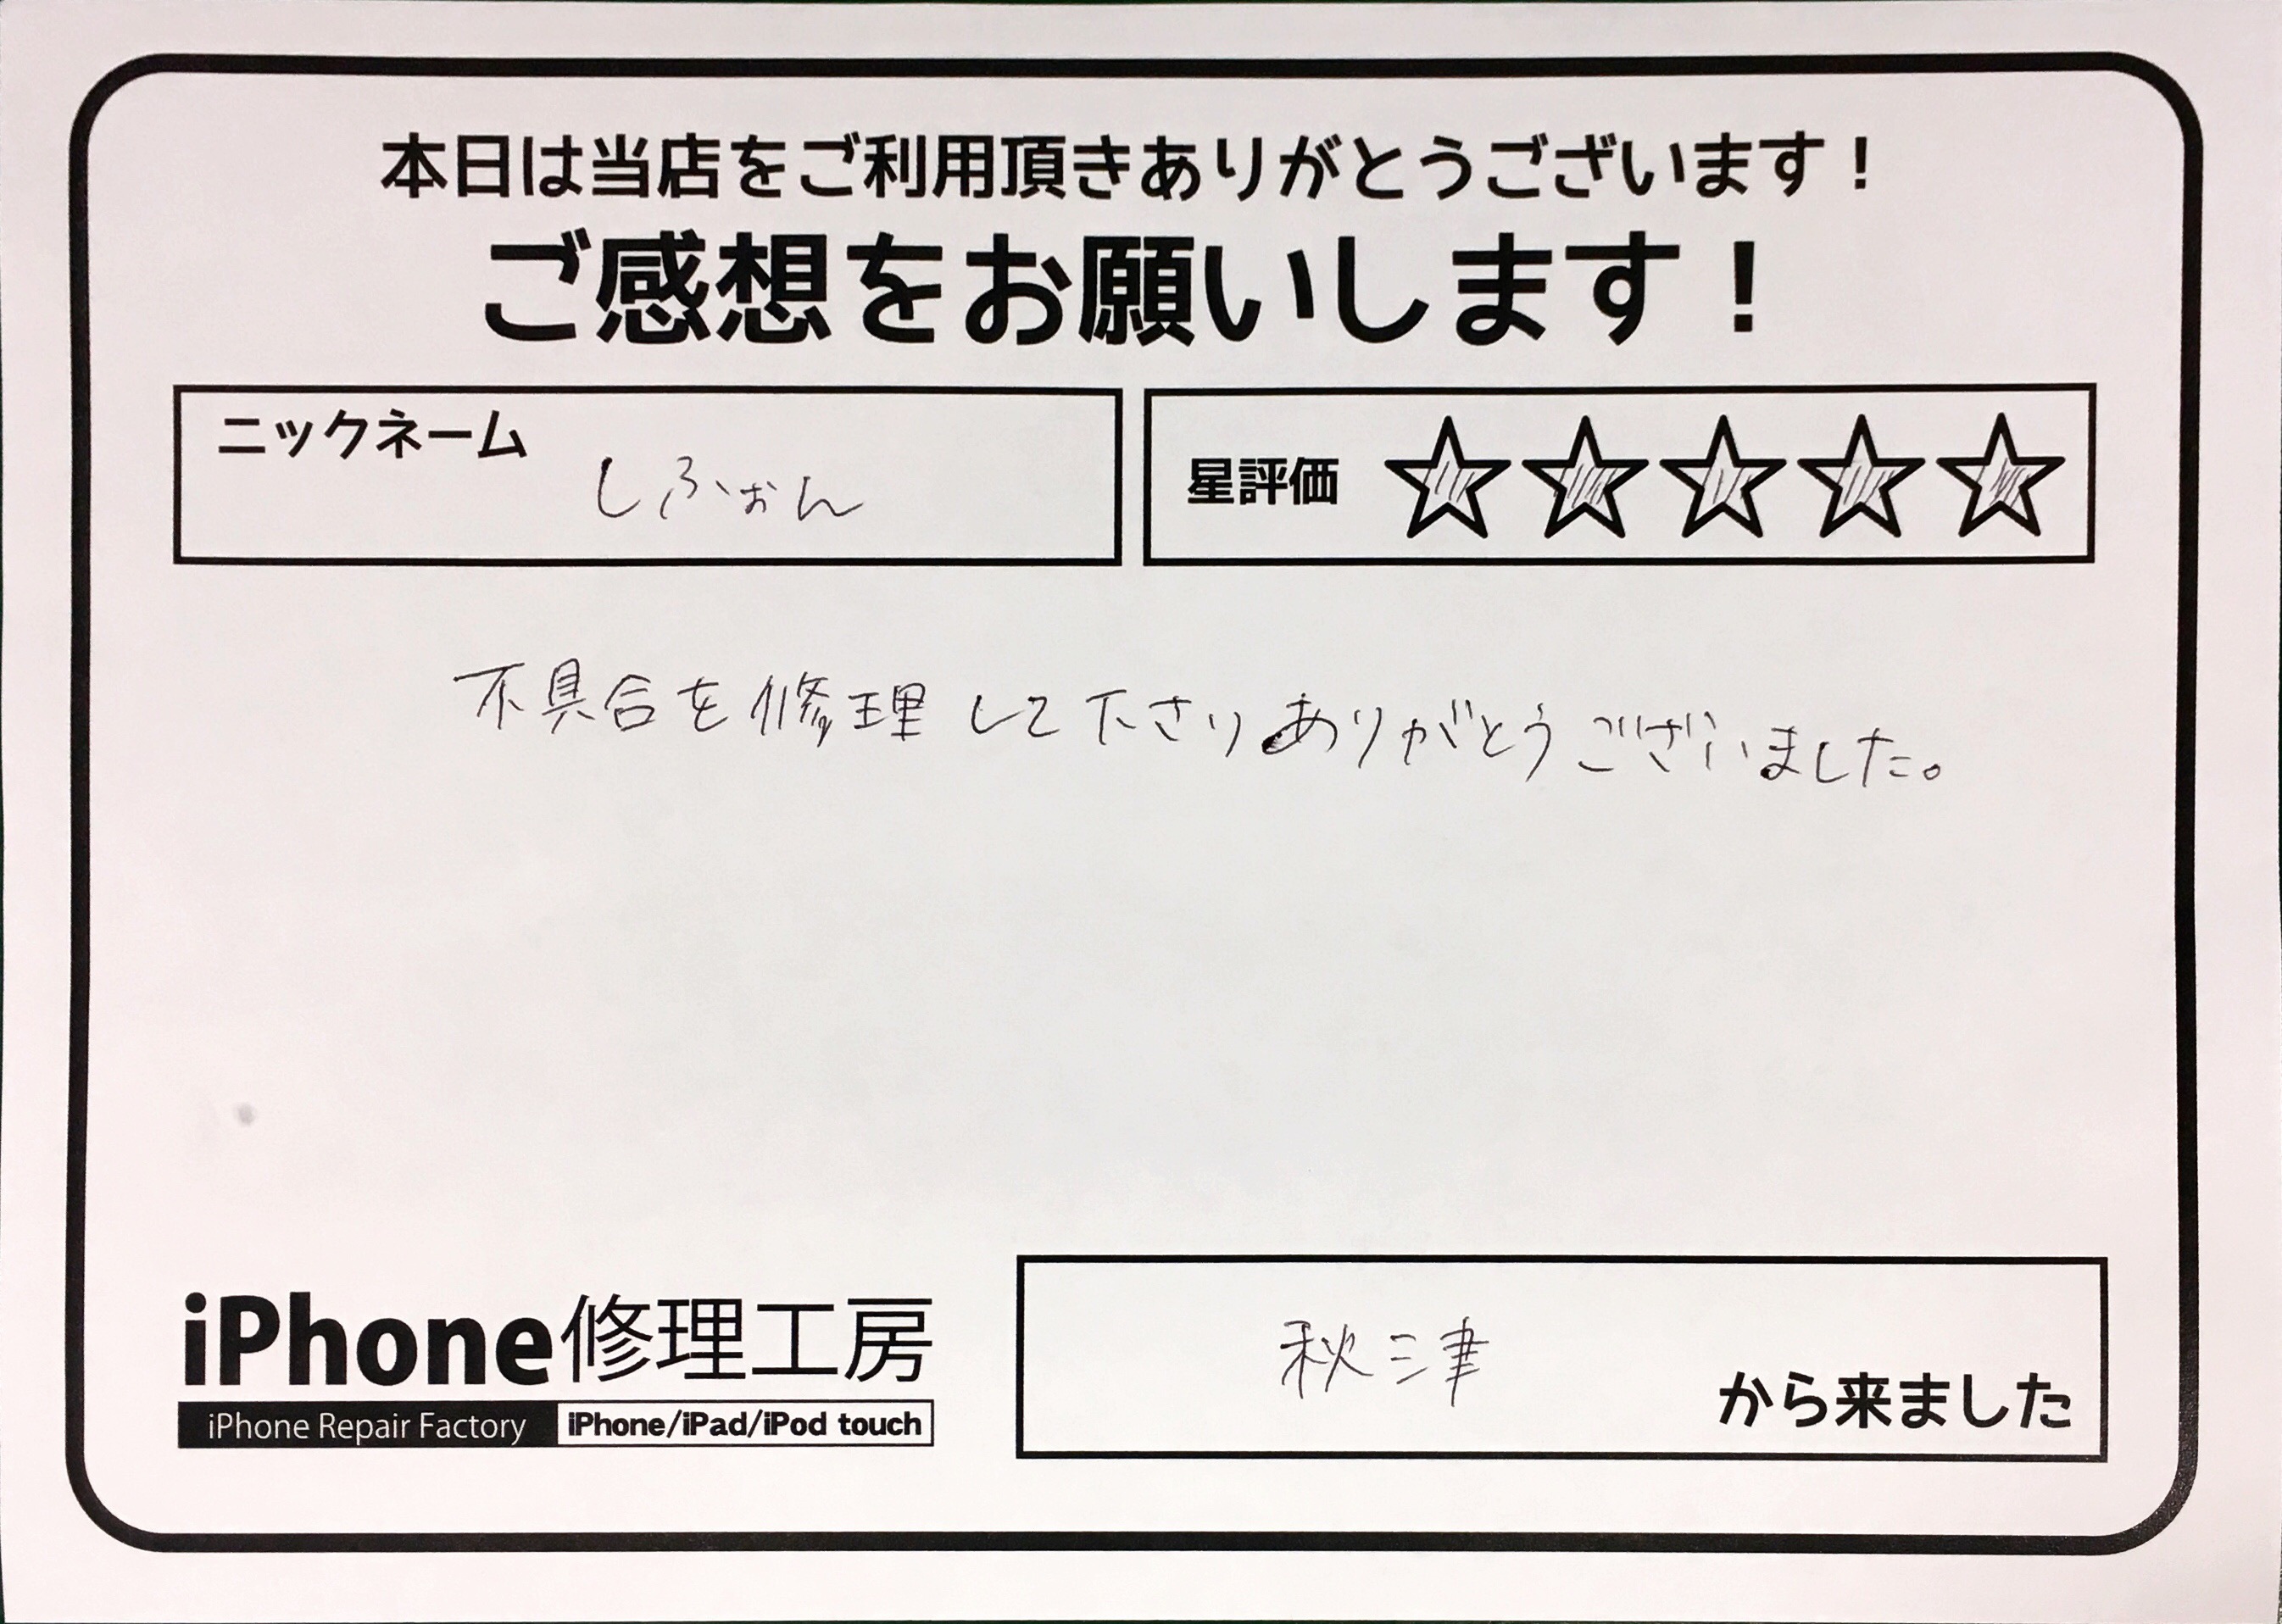 本日は当店をご利用頂きありがとうございます！
ご感想をお願いします！
ニックネーム しふぉん
星評価 ☆☆☆☆☆
不具合を修理して下さりありがとうございました。
iPhone修理工房
iPhone Repair Factory iPhone/iPad/iPod touch
秋津 から来ました